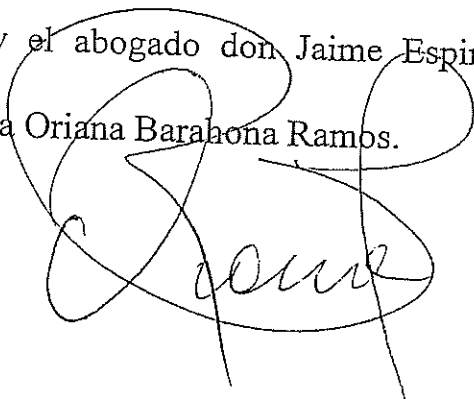 y el abogado don Jaime Espin
a Oriana Barahona Ramos.